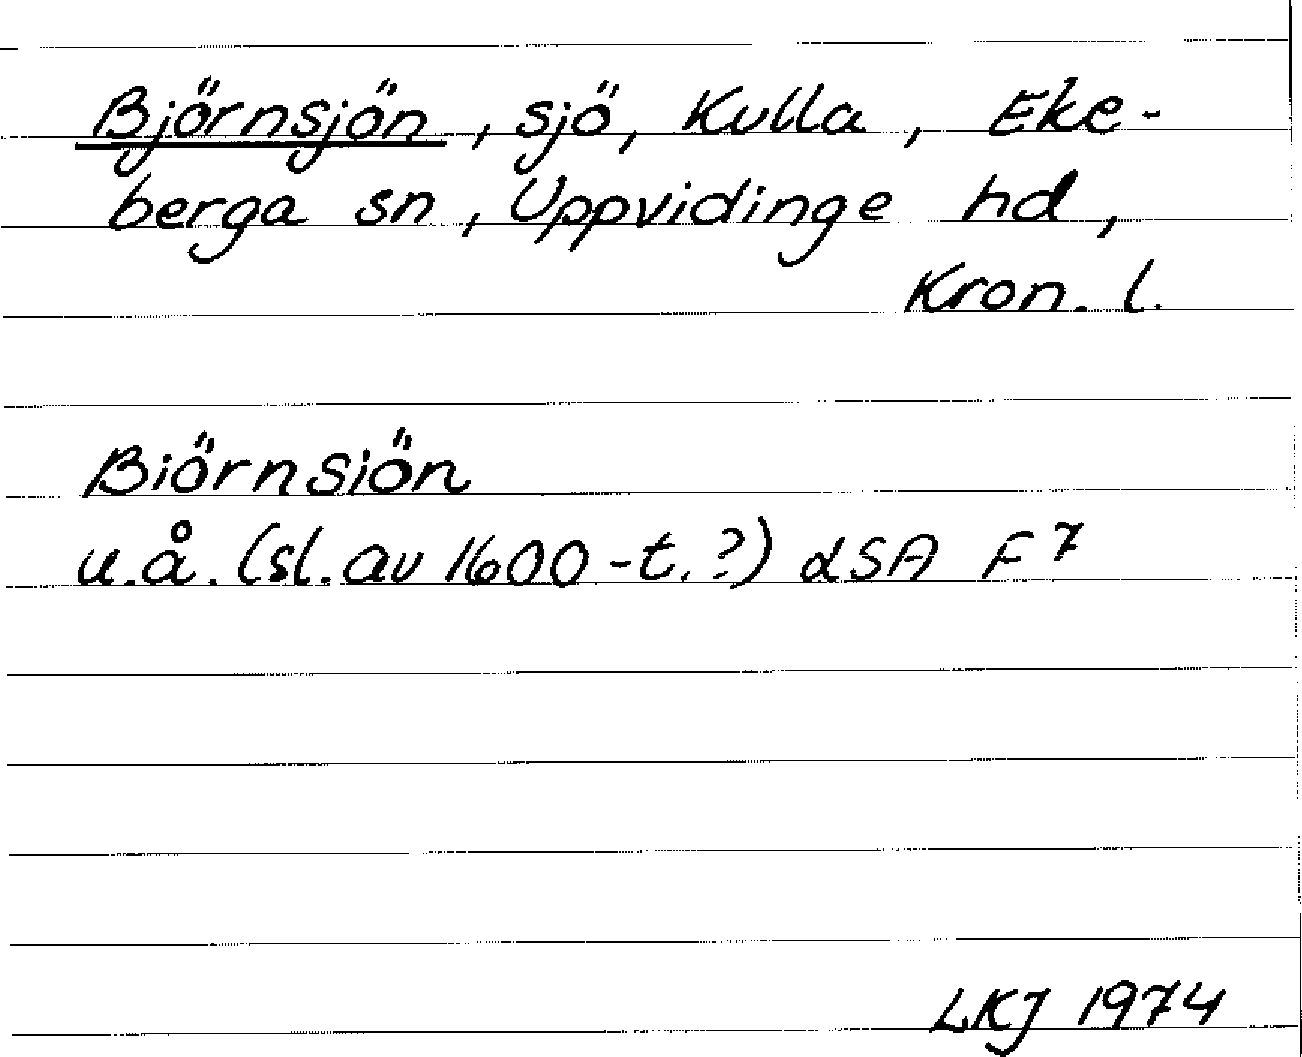 Björnsjön, sjö, Kulla, Eke-
berga sn, Uppvidinge hd,
Kron. l.
Biörnsiön
u.å. (sl. av 1600-t.?) LSA F⁷
LKJ 1974